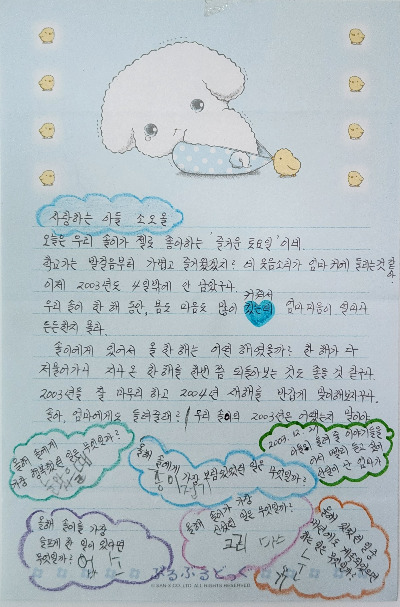 사랑하는 아들 소오올
오늘은 우리 솔이가 젤로 좋아하는 '즐거운 토요일'이네.
학교가는 발걸음부터 가볍고 즐거웠겠지? 네 웃음소리가 엄마 귀에 들리는것 같아.
이제 2003년도 4일밖에 안 남았구나.
우리 솔이 한 해 동안, 몸도 마음도 많이 커줘서 엄마 마음이 얼마나
든든한지 몰라.
솔이에게 있어서 올 한 해는 어떤 해였을까? 한 해가 다
저물어가서 지나온 한 해를 한번쯤 되돌아보는 것도 좋을 것 같구나.
2003년을 잘 마무리 하고 2004년 새해를 반갑게 맞이해보자구나.
솔아, 엄마에게도 들려줄래? 우리 솔이의 2003년은 어땠는지 말이야
올해 솔이에게
가장 행복했던 일은 무엇일까?
올해 솔이에게
가장 보람있었던 일은 무엇일까?
종이접기
2003. 12. 27
아들이 들려 줄 이야기들을
어서 빨리 듣고 싶어
안달이 난 엄마가
올해 솔이를 가장
슬프게 한 일이 있다면
무엇일까?
올해 솔이가 가장
신났던 일은 무엇일까?
무엇일까?
ぷるぷるどっぐ
© SAN-X CO.,LTD. ALL RIGHTS RESERVED.